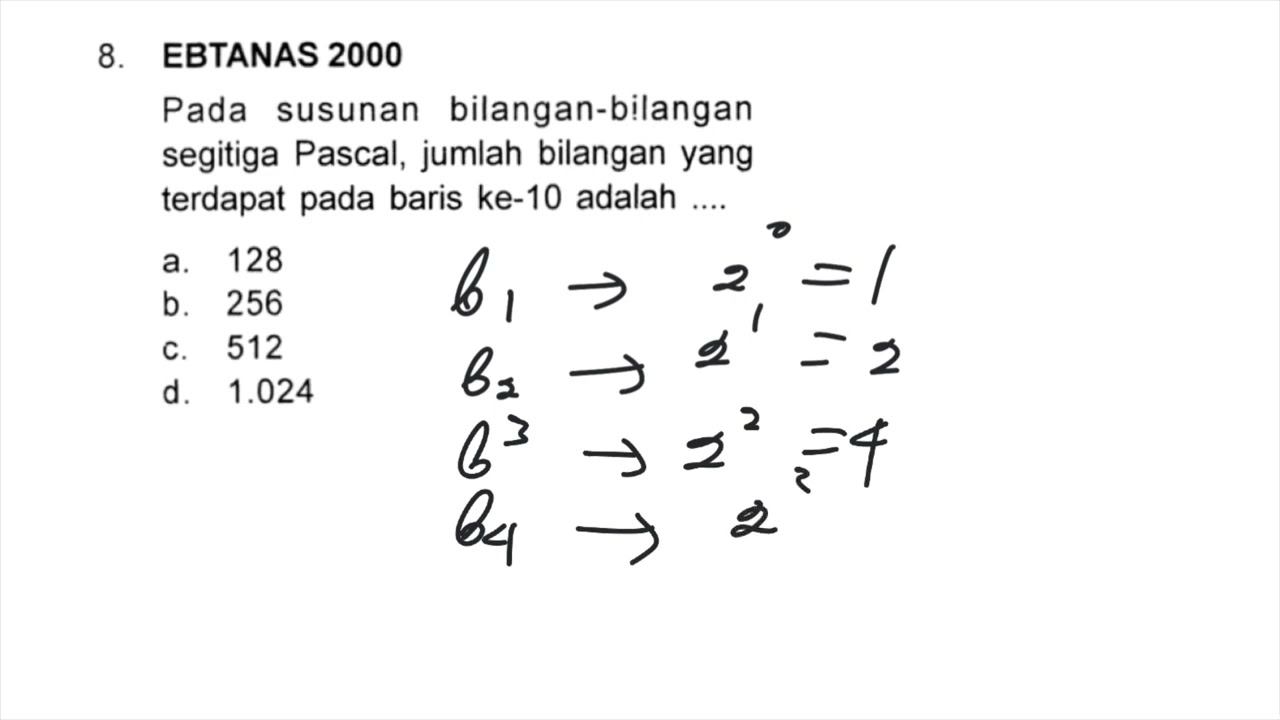 8. EBTANAS 2000
Pada susunan bilangan-bilangan
segitiga Pascal, jumlah bilangan yang
terdapat pada baris ke-10 adalah ....
a. 128
b. 256
c. 512
d. 1.024
b₁ → 2⁰ = 1
b₂ → 2¹ = 2
b³ → 2² = 4
b₄ → 2²